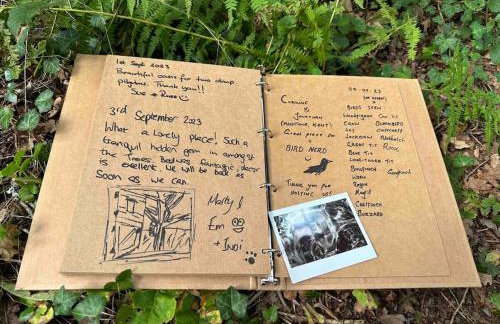 1st Sept 2023
Beautiful oasis for two damp
pilgrims. Thank you!!
Sue + Russ
3rd September 2023
What a lovely place! Such a
tranquil hidden gem in amongst
the trees. Bed was fantastic, decor
is excellent. We will be back as
soon as we can.
Matty &
Em
+ Indi
Caroline
Jonathan
(Maidstone, Kent)
Great place for
BIRD NERD
Thank you for
hosting us!
04.09.23
Birds seen
Woodpigeon
Crow Blackbird
Jay Chiffchaff
Jackdaw Nuthatch
Great Tit Rook
Blue Tit
Long-tailed Tit
Blackcap
Wren
Robin
Magpie
Chaffinch
Buzzard